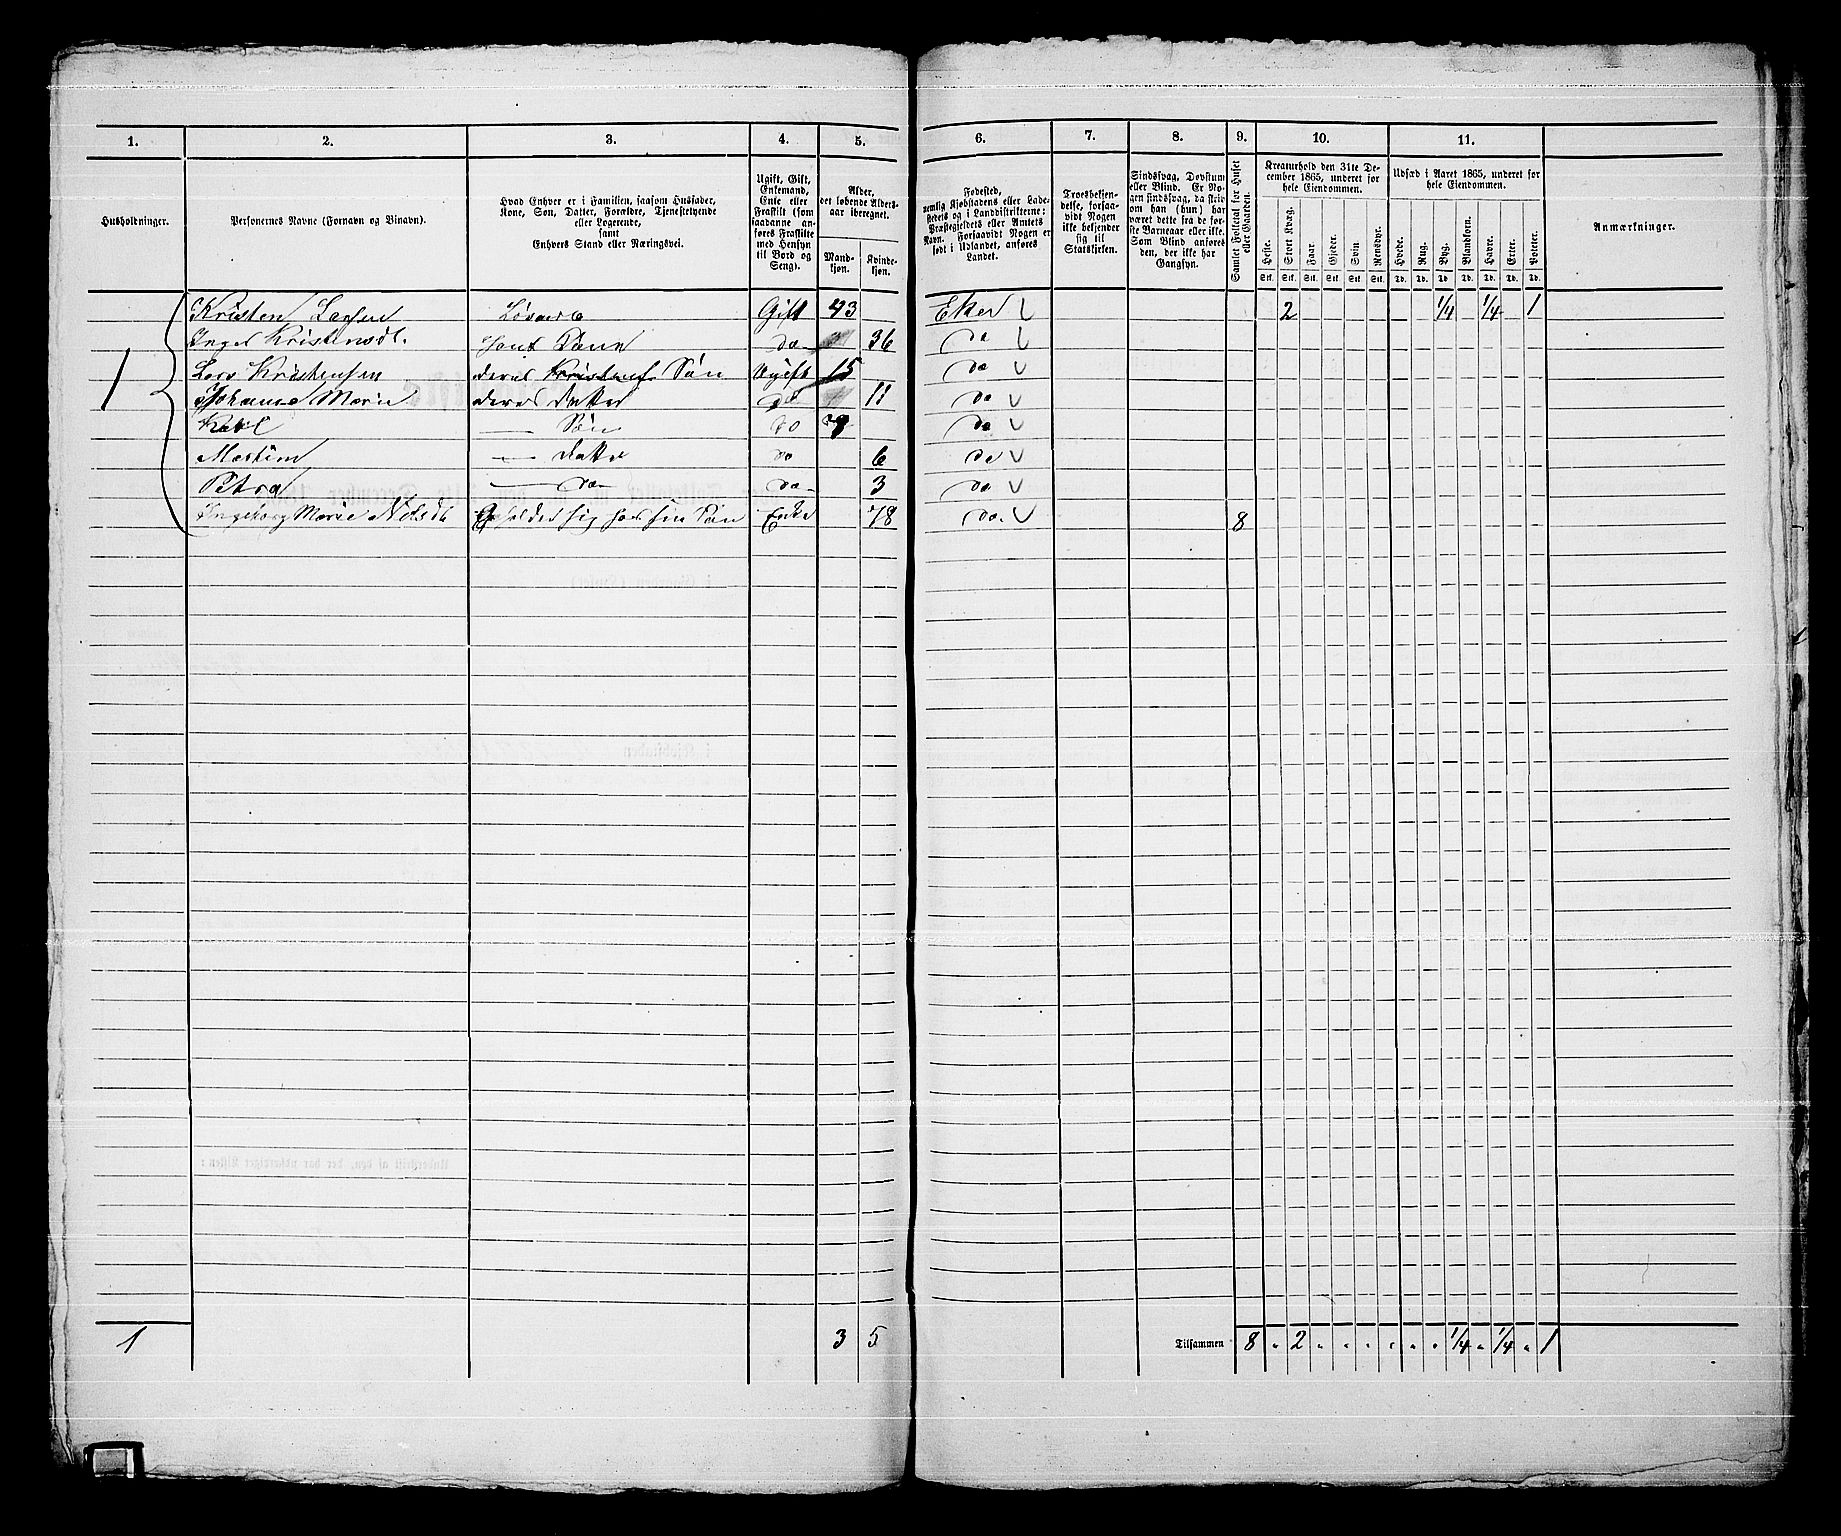 1. 2. 3. 4. 5. 6. 7. 8. 9. 10. 11.
Husholdninger.
Personernes Navne (Fornavn og Binavn).
Hvad Enhver er i Familien, saasom Husfader,
Kone, Søn, Datter, Forældre, Tjenestetyende
eller Logerende,
samt
Enhvers Stand eller Næringsvei.
Ugift, Gift,
Enkemand,
Enke eller
Fraskilt (som
saadanne an-
føres Fraskilte
med Hensyn
til Bord og
Seng).
Alder,
det løbende Alders-
aar iberegnet.
Mand-
kjøn.
Kvinde-
kjøn.
Fødested,
nemlig Kjøbstadens eller Lade-
stedets og i Landdistrikterne:
Præstegjeldets eller Amtets
Navn. Forsaavidt Nogen er
født i Udlandet, anføres
Landet.
Troesbekjen-
delse, forsaa-
vidt Nogen
ikke bekjender
sig til
Statskirken.
Sindssvag, Døvstum
eller Blind. Er No-
gen sindssvag, da skriv
om han (hun) har
været dette fra de før-
ste Barneaar eller ikke.
Som Blind anføres
den, der ikke har
Gangsyn.
Samlet Folketal for Huset
eller Gaarden.
Kreaturhold den 31te De-
cember 1865, underet for
hele Eiendommen.
Heste. Stort Kvæg. Faar. Gjeder. Svin. Rensdyr.
Stk. Stk. Stk. Stk. Stk. Stk.
Udsæd i Aaret 1865, underet for
hele Eiendommen.
Hvede. Rug. Byg. Blandkorn. Havre. Erter. Poteter.
Td. Td. Td. Td. Td. Td. Td.
Anmærkninger.
1
Kristen Larsen Gift 43 Eker 2 1/4 1/4 1
Inger Kristensdt. Hans Kone do 36 do
Lars Kristensen deres Søn Ugift 15 do
Johanne Marie deres Datter do 11 do
Karl — Søn do do
— Datter do 6 do
Petra — do do 3 do
Ingeborg Marie Nelsdt Opholder sig hos sin Søn Enke 78 do. 8
1 3 5 Tilsammen 8 " 2 " " " " " " 1/4 " 1/4 " 1